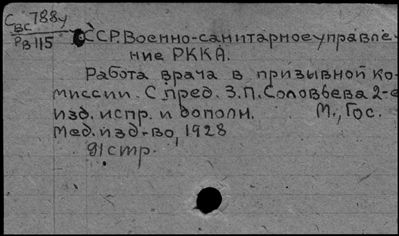 С 788у
ВС
РВ 115
СССР. Военно-санитарное управле-
ние РККА.
Работа врача в призывной ко-
миссии. С пред. З.П. Соловьева 2-е
изд. испр. и дополн. М., Гос.
Мед. изд-во, 1928
91 стр.